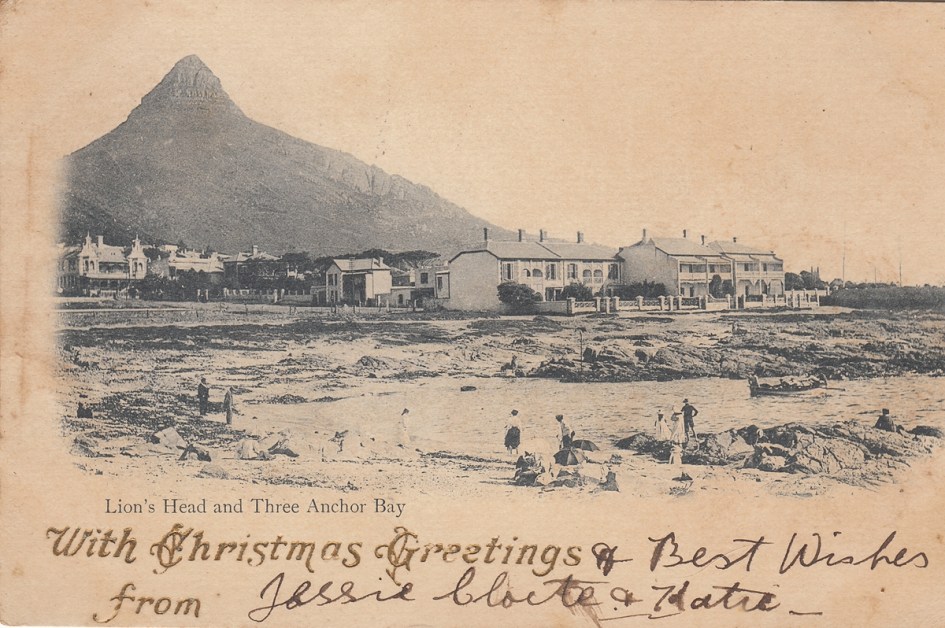 Lion's Head and Three Anchor Bay
With Christmas Greetings & Best Wishes
from Jessie Cloete & Katie